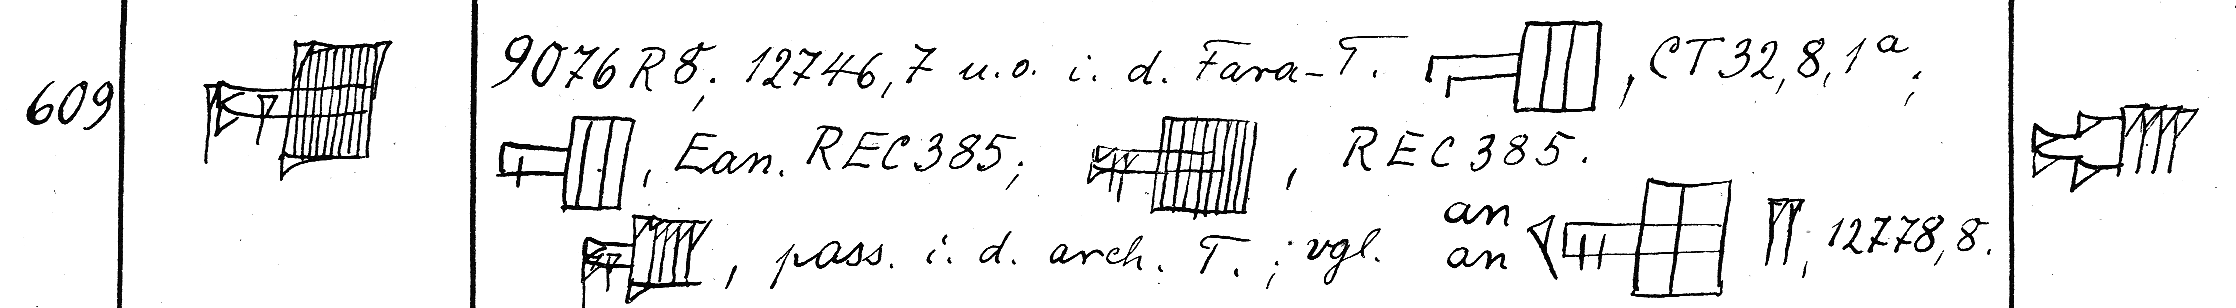 609
9076 R 8; 12746,7 u.o. i. d. Fara-T. , CT 32,8,1ª;
, Ean. REC 385; , REC 385.
, pass. i. d. arch. T.; vgl. an an , 12778,8.